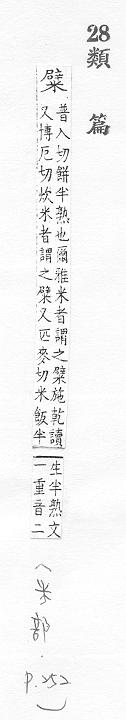 28
類篇
糪
普入切餅半熟也爾雅米者謂之糪施乾讀
又博厄切炊米者謂之糪又匹麥切米飯半
生半熟文
一重音二
(米部.
p.252)